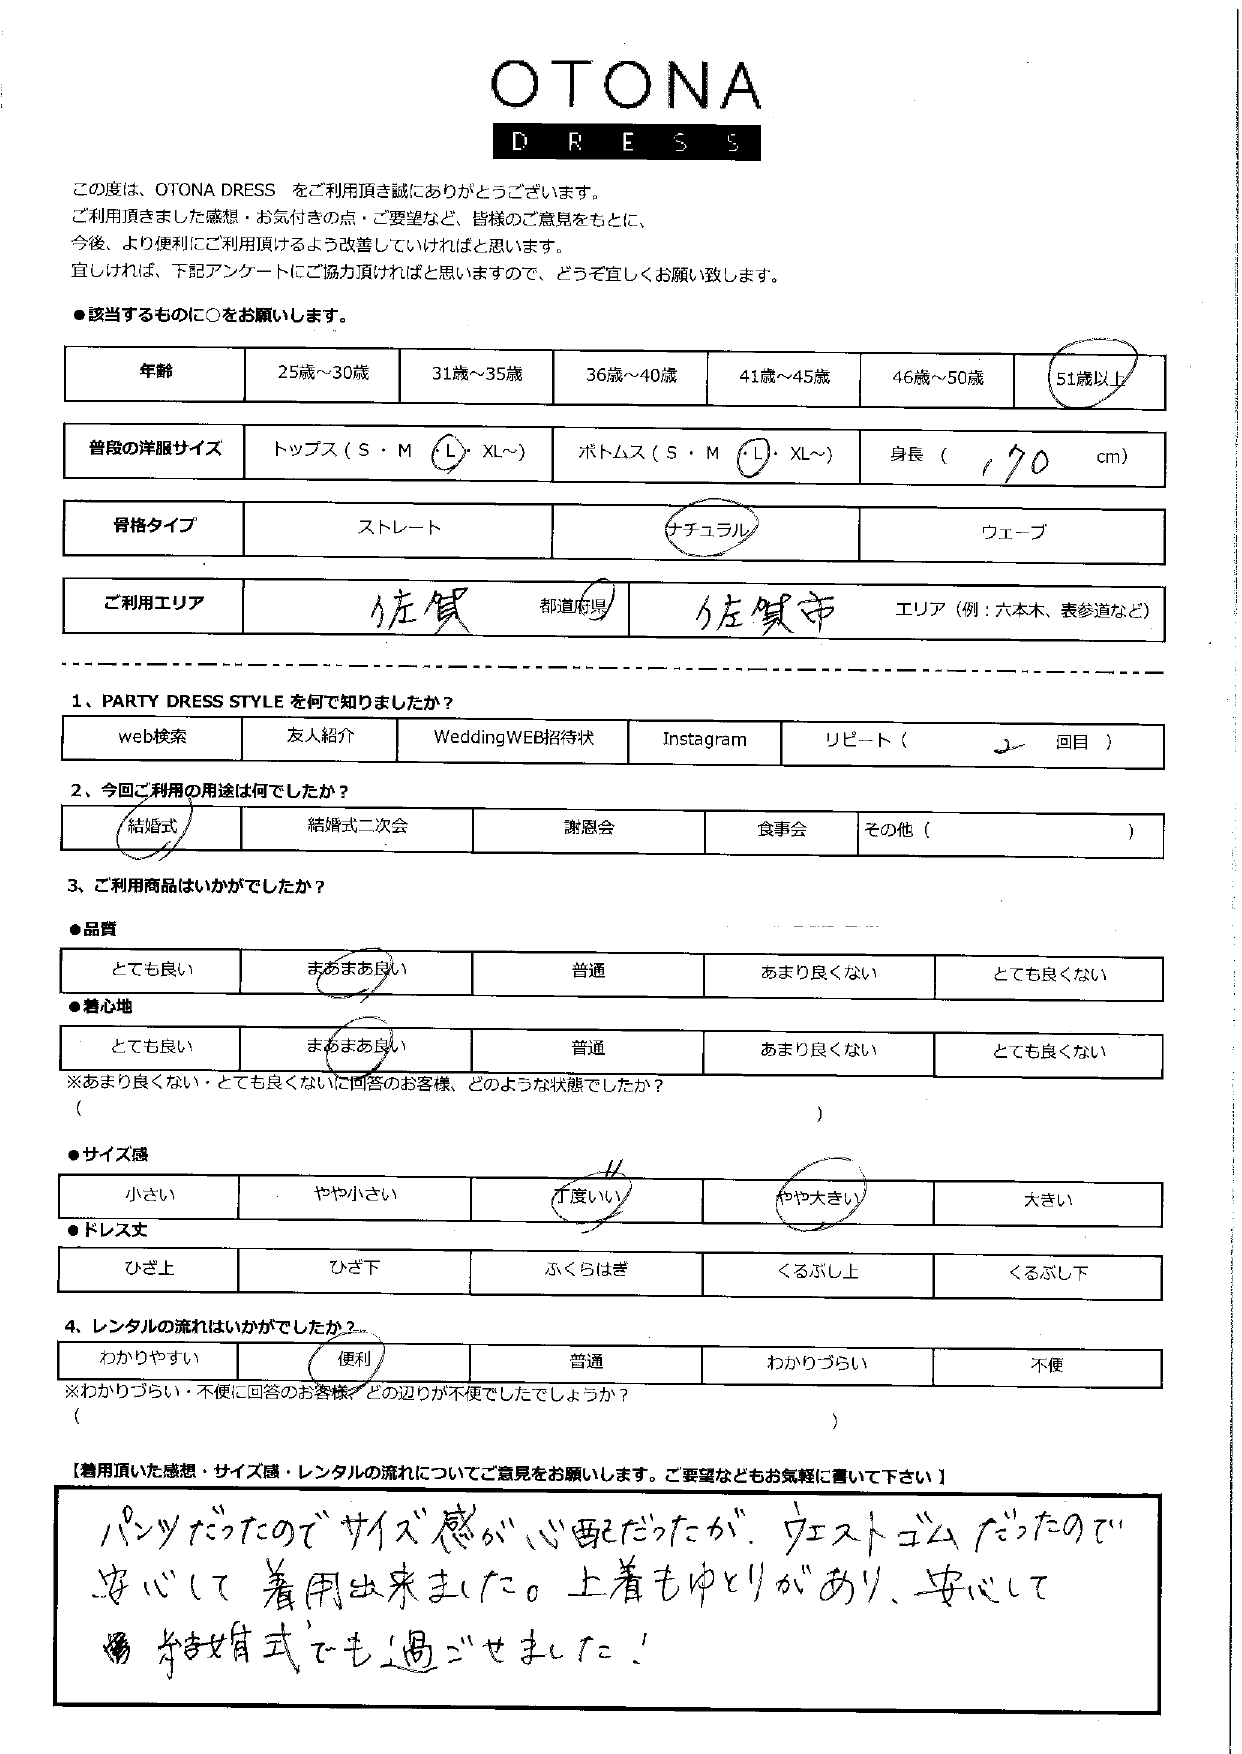 OTONA
DRESS
この度は、OTONA DRESS をご利用頂き誠にありがとうございます。
ご利用頂きました感想・お気付きの点・ご要望など、皆様のご意見をもとに、
今後、より便利にご利用頂けるよう改善していければと思います。
宜しければ、下記アンケートにご協力頂ければと思いますので、どうぞ宜しくお願い致します。
●該当するものに○をお願いします。
年齢 25歳～30歳 31歳～35歳 36歳～40歳 41歳～45歳 46歳～50歳 51歳以上
普段の洋服サイズ トップス ( S ・ M ・ L ・ XL～) ボトムス ( S ・ M ・ L ・ XL～) 身長 ( 170 cm)
骨格タイプ ストレート ナチュラル ウェーブ
ご利用エリア 佐賀 都道府県 佐賀市 エリア（例：六本木、表参道など）
1、PARTY DRESS STYLE を何で知りましたか？
web検索 友人紹介 WeddingWEB招待状 Instagram リピート（ 2 回目 ）
2、今回ご利用の用途は何でしたか？
結婚式 結婚式二次会 謝恩会 食事会 その他（ ）
3、ご利用商品はいかがでしたか？
●品質
とても良い まあまあ良い 普通 あまり良くない とても良くない
●着心地
とても良い まあまあ良い 普通 あまり良くない とても良くない
※あまり良くない・とても良くないに回答のお客様、どのような状態でしたか？
( )
●サイズ感
小さい やや小さい 丁度いい やや大きい 大きい
●ドレス丈
ひざ上 ひざ下 ふくらはぎ くるぶし上 くるぶし下
4、レンタルの流れはいかがでしたか？
わかりやすい 便利 普通 わかりづらい 不便
※わかりづらい・不便に回答のお客様、どの辺りが不便でしたでしょうか？
( )
【着用頂いた感想・サイズ感・レンタルの流れについてご意見をお願いします。ご要望などもお気軽に書いて下さい】
パンツだったのでサイズ感が心配だったが、ウエストゴムだったので
安心して着用出来ました。上着もゆとりがあり、安心して
結婚式でも過ごせました！